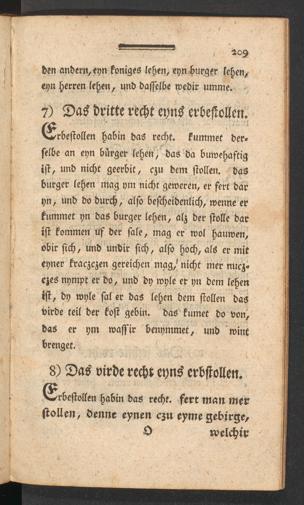 209
den andern, eyn koniges lehen, eyn burger lehen,
eyn herren lehen, und dasselbe wedir umme.
7) Das dritte recht eyns erbestollen.
Erbestollen habin das recht. kummet der-
selbe an eyn bürger lehen, das da buwehaftig
ist, und nicht geerbit, czu dem stollen. das
burger lehen mag ym nicht geweren, er fert dar
yn, und do durch, also bescheidenlich, wenne er
kummet yn das burger lehen, alz der stolle dar
ist kommen uf der sale, mag er wol hauwen,
obir sich, und undir sich, also hoch, als er mit
eyner kraczczen gereichen mag, nicht mer nucz-
czes nympt er do, und dy wyle er yn dem lehen
ist, dy wyle sal er das lehen dem stollen das
virde teil der kost gebin. das kumet do von,
das er ym wassir benymmet, und wint
brenget.
8) Das virde recht eyns erbstollen.
Erbestollen habin das recht. fert man mer
stollen, denne eynen czu eyme gebirge,
O welchir